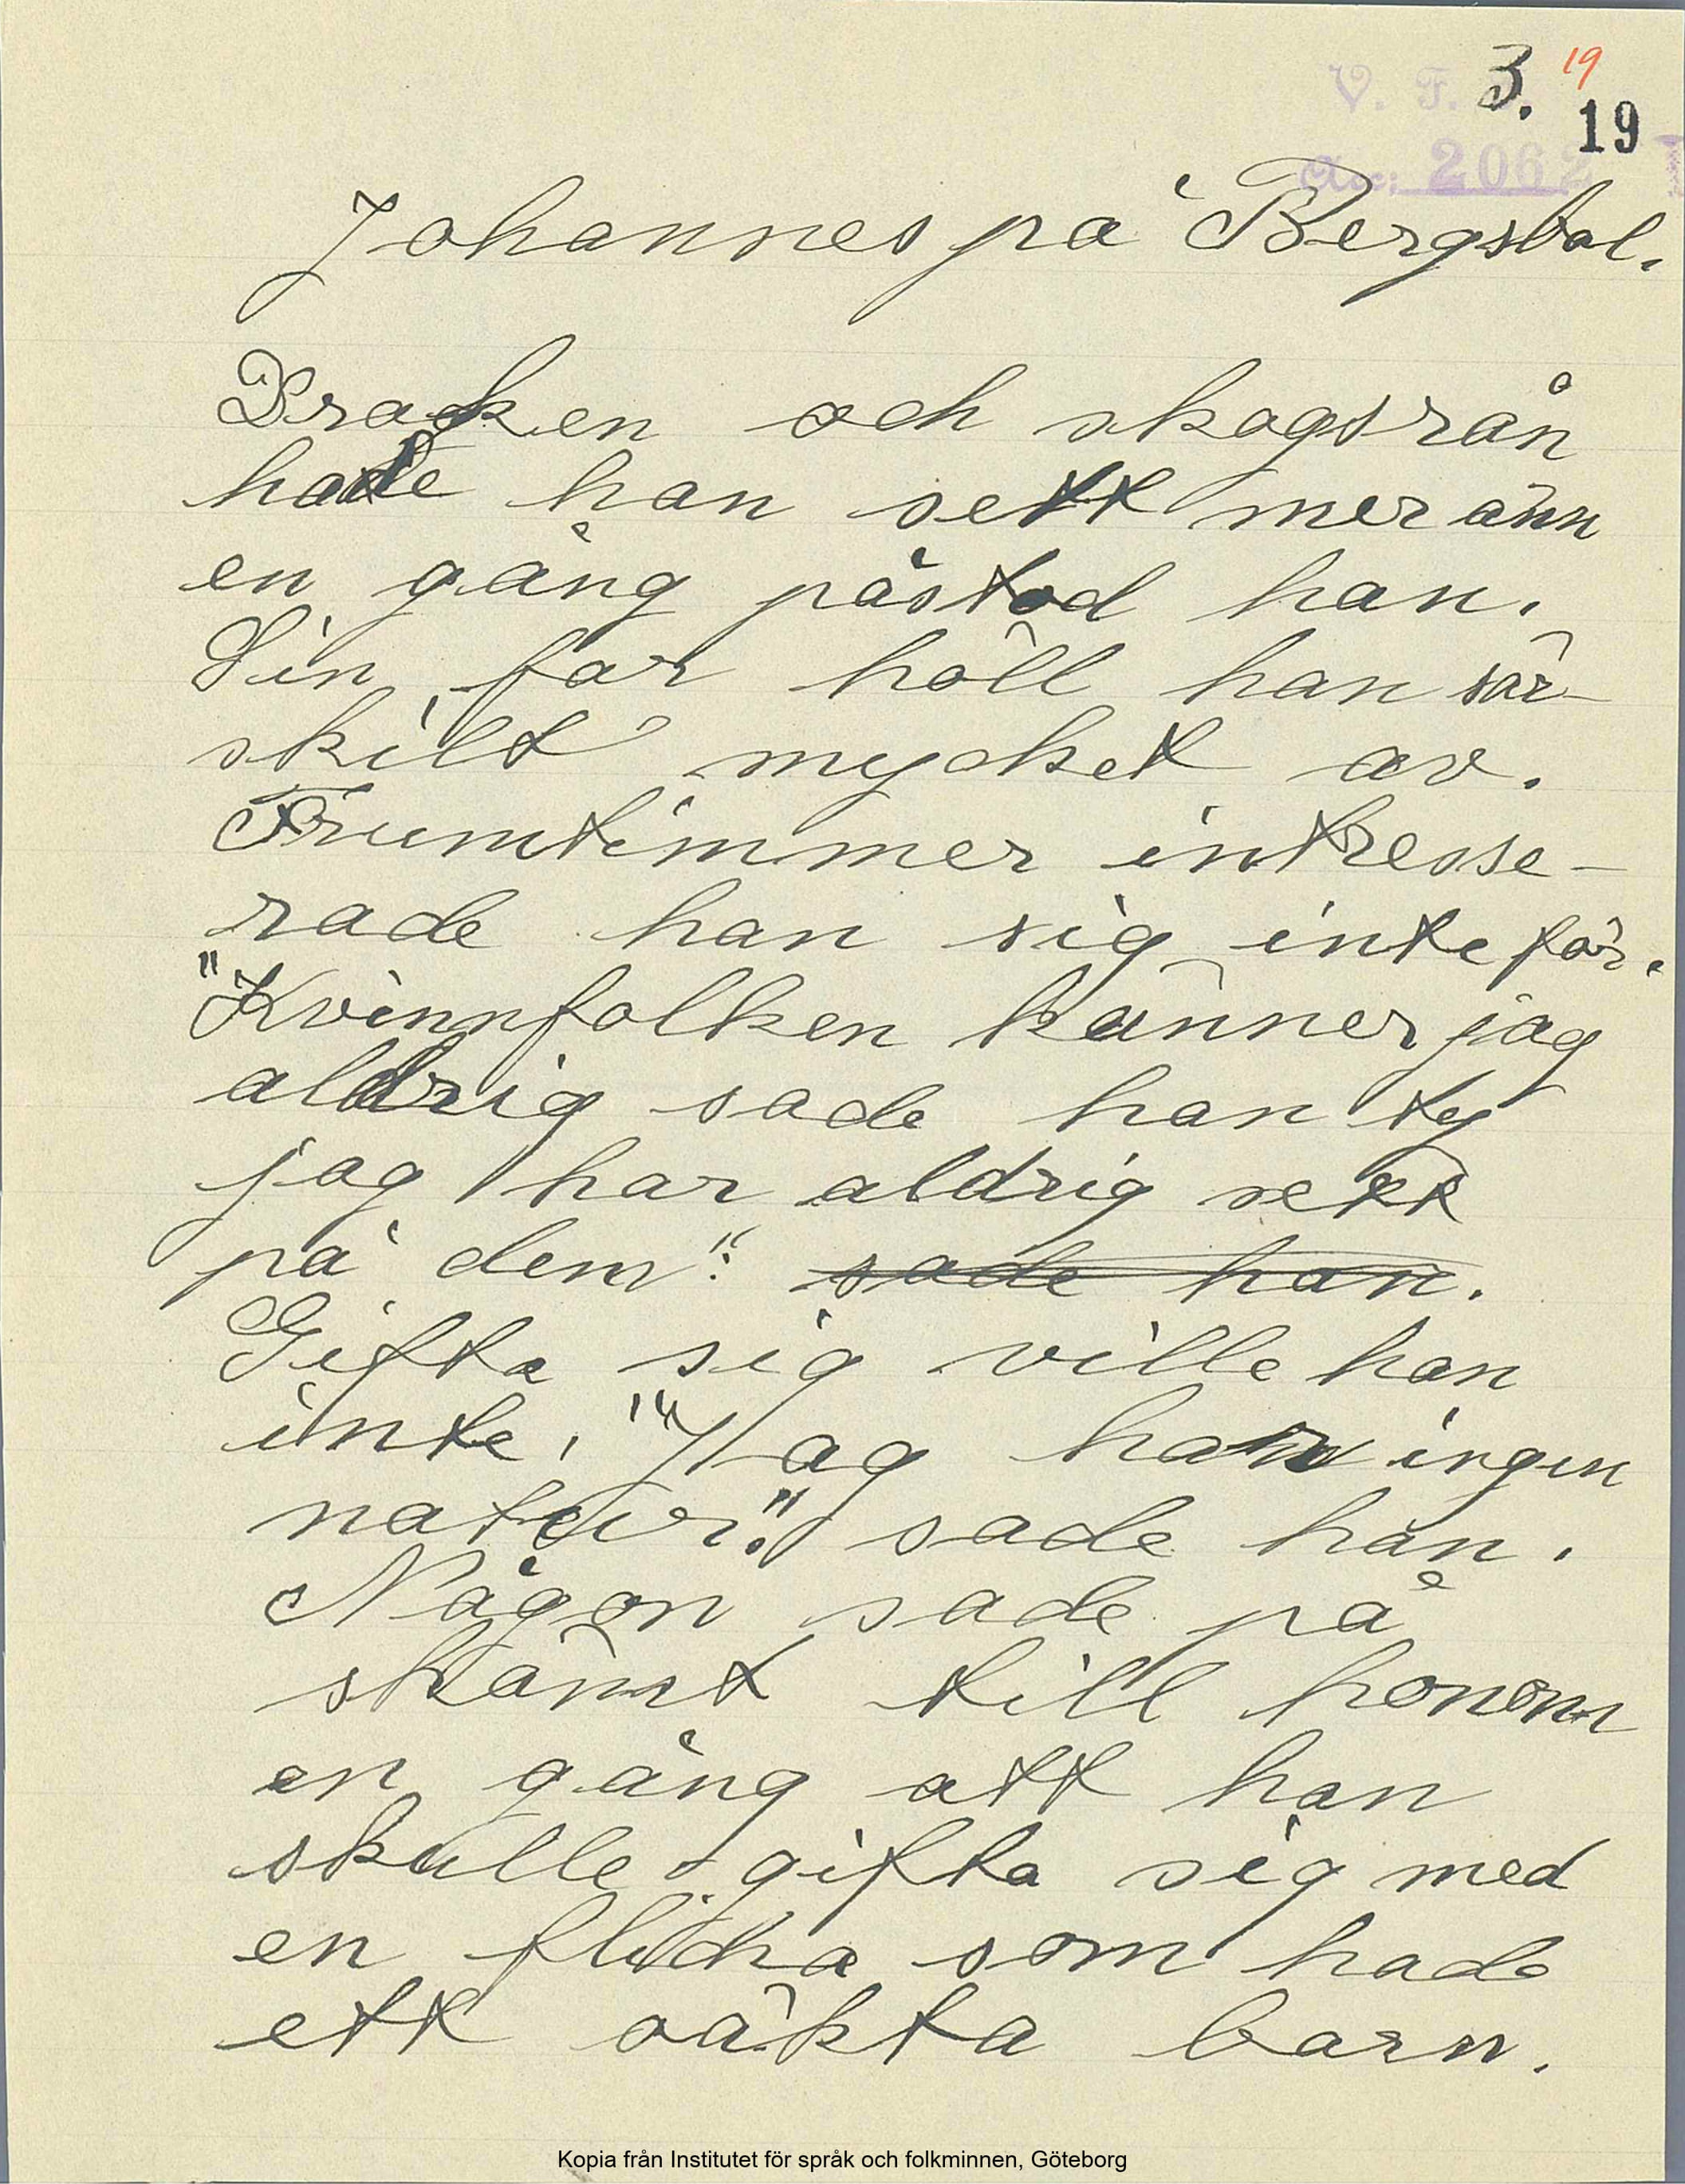 3. 19
19
V. F.
Acc. 2062
Johannes på Bergsbol.
Draken och skogsrån
hade han sett mer änn
en gång påstod han.
Sin far höll han sär-
skilt mycket av.
Fruntimmer intresse-
rade han sig inte för.
"Kvinnfolken känner jag
aldrig sade han ty
jag har aldrig sett
på dem". sade han.
Gifta sig ville han
inte. "Jag har ingen
natur." sade han.
Någon sade på
skämt till honom
en gång att han
skulle gifta sig med
en flicka som hade
ett oäkta barn.
Kopia från Institutet för språk och folkminnen, Göteborg